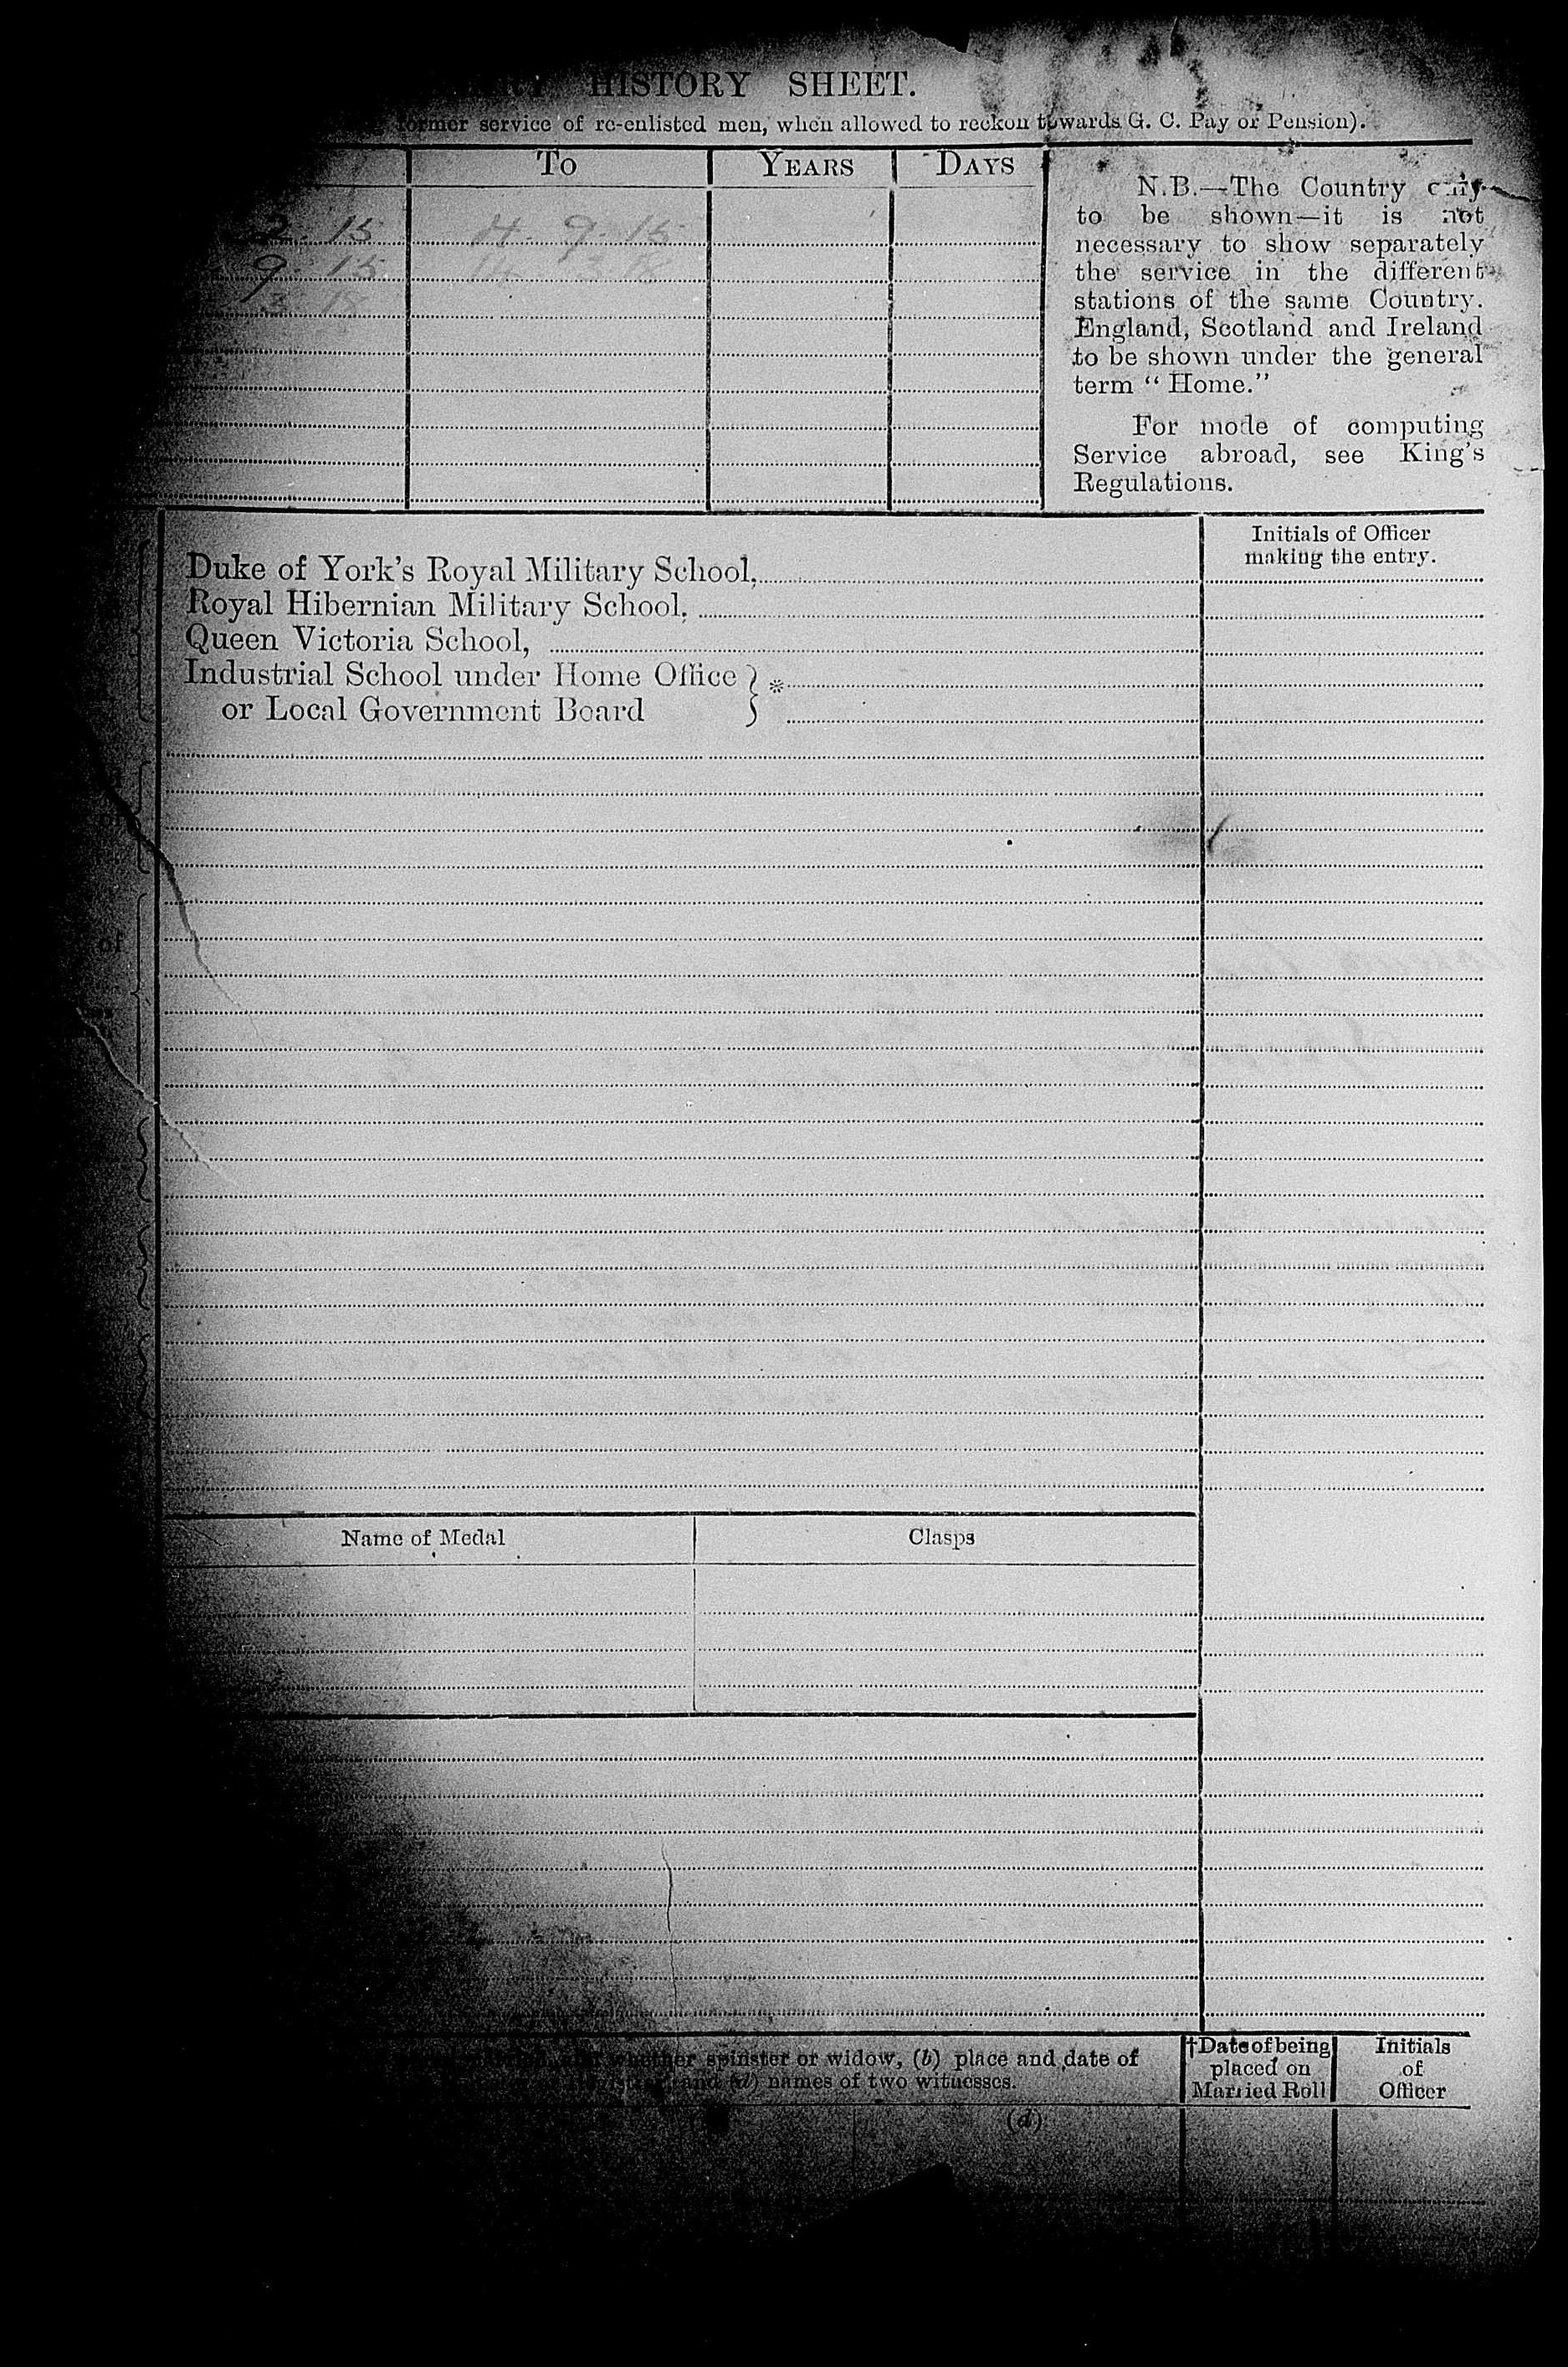 HISTORY SHEET.
former service of re-enlisted men, when allowed to reckon towards G. C. Pay or Pension).
To YEARS DAYS
2. 15 4. 9. 15
9. 15 14 3 18
3. 18
N.B.—The Country only
to be shown—it is not
necessary to show separately
the service in the different
stations of the same Country.
England, Scotland and Ireland
to be shown under the general
term “ Home.”
For mode of computing
Service abroad, see King's
Regulations.
Initials of Officer
making the entry.
Duke of York's Royal Military School,
Royal Hibernian Military School,
Queen Victoria School,
Industrial School under Home Office } *
or Local Government Board
of
of
Name of Medal Clasps
whether spinster or widow, (b) place and date of
and (d) names of two witnesses.
†Date of being
placed on
Married Roll
Initials
of
Officer
(d)